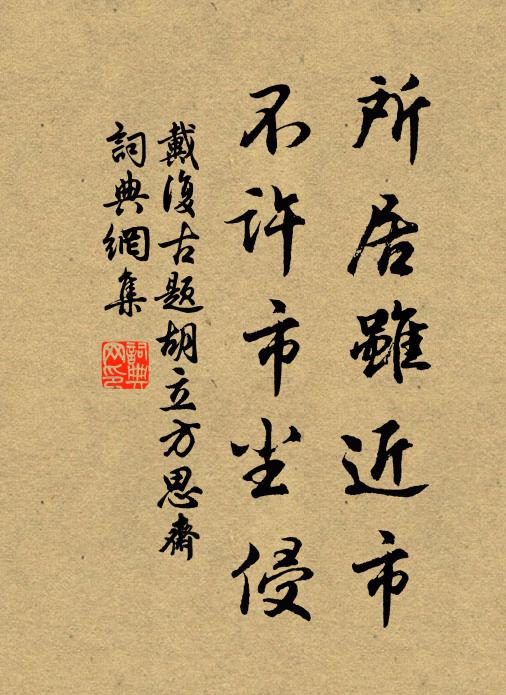 所居雖近市
不許市尘侵
戴復古题胡立方思齋
詞典網集
詞典网印